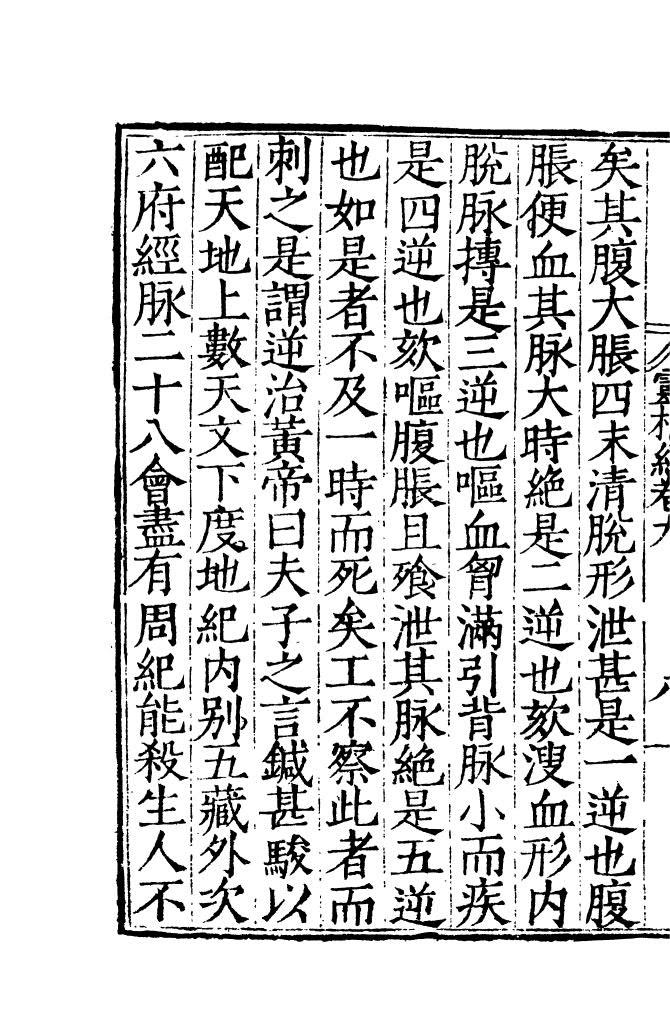 矣其腹大脹四末清脫形泄甚是一逆也腹
脹便血其脉大時絶是二逆也欬溲血形内
脫脉摶是三逆也嘔血胷滿引背脉小而疾
是四逆也欬嘔腹脹且飱泄其脉絶是五逆
也如是者不及一時而死矣工不察此者而
刺之是謂逆治黃帝曰夫子之言鍼甚駿以
配天地上數天文下度地紀内别五藏外次
六府經脉二十八會盡有周紀能殺生人不